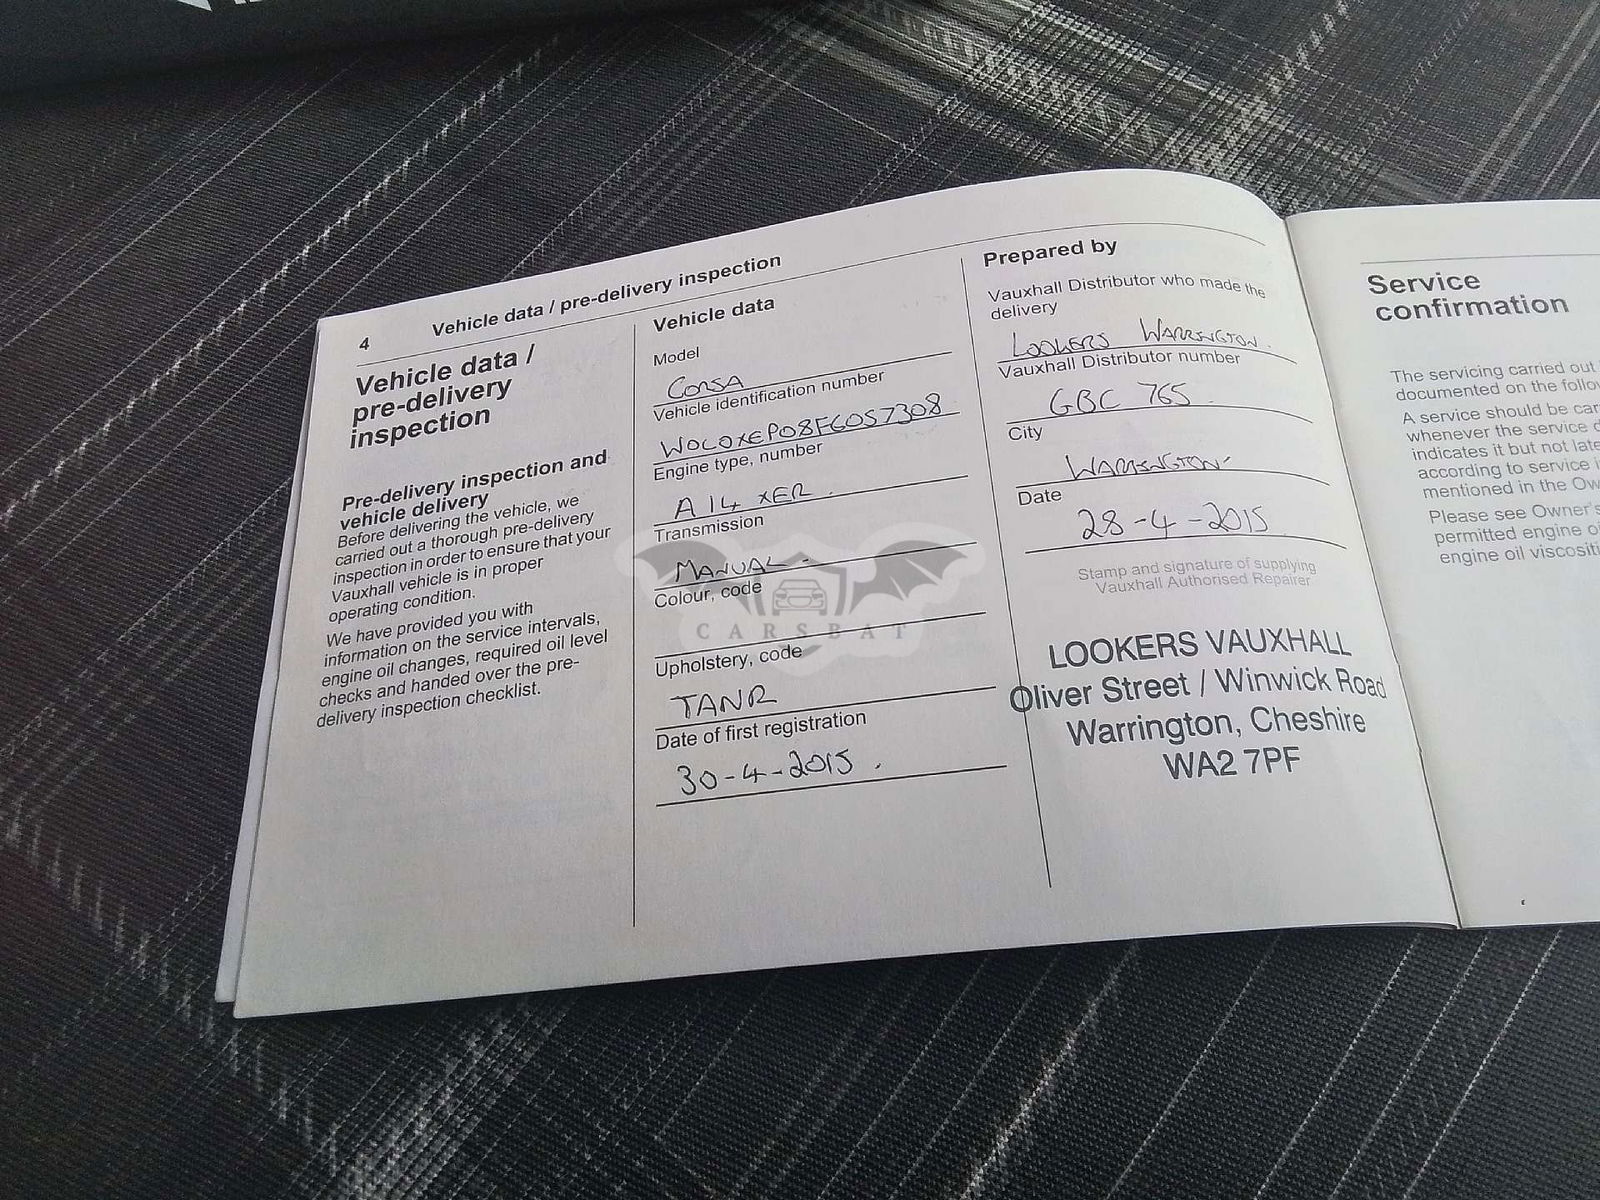 4 Vehicle data / pre-delivery inspection
Vehicle data /
pre-delivery
inspection
Pre-delivery inspection and
vehicle delivery
Before delivering the vehicle, we
carried out a thorough pre-delivery
inspection in order to ensure that your
Vauxhall vehicle is in proper
operating condition.
We have provided you with
information on the service intervals,
engine oil changes, required oil level
checks and handed over the pre-
delivery inspection checklist.
Vehicle data
Model
CORSA
Vehicle identification number
W0L0XEP08F6057308
Engine type, number
A14 XER.
Transmission
MANUAL.
Colour, code
Upholstery, code
TANR
Date of first registration
30-4-2015.
Prepared by
Vauxhall Distributor who made the
delivery
LOOKERS WARRINGTON.
Vauxhall Distributor number
GBC 765.
City
WARRINGTON.
Date
28-4-2015
Stamp and signature of supplying
Vauxhall Authorised Repairer
LOOKERS VAUXHALL
Oliver Street / Winwick Road
Warrington, Cheshire
WA2 7PF
CARSBAT
Service
confirmation
The servicing carried out
documented on the follow
A service should be car
whenever the service d
indicates it but not late
according to service i
mentioned in the Ow
Please see Owner's
permitted engine o
engine oil viscositi